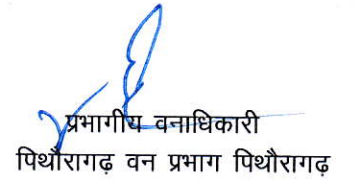 प्रभागीय वनाधिकारी
पिथौरागढ़ वन प्रभाग पिथौरागढ़